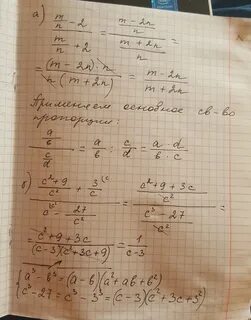 а) (m/n - 2)/(m/n + 2) = ((m - 2n)/n)/((m + 2n)/n) =
= (m - 2n) · n / n (m + 2n) = (m - 2n)/(m + 2n)
Применяем основное св-во
пропорции:
(a/b)/(c/d) = a/b : c/d = a · d / b · c
б) ((c² + 9)/c² + 3/c)/(c - 27/c²) = ((c² + 9 + 3c)/c²)/((c³ - 27)/c²) =
= (c² + 9 + 3c)/((c - 3)(c² + 3c + 9)) = 1/(c - 3)
a³ - b³ = (a - b)(a² + ab + b²)
c³ - 27 = c³ - 3³ = (c - 3)(c² + 3c + 3²)